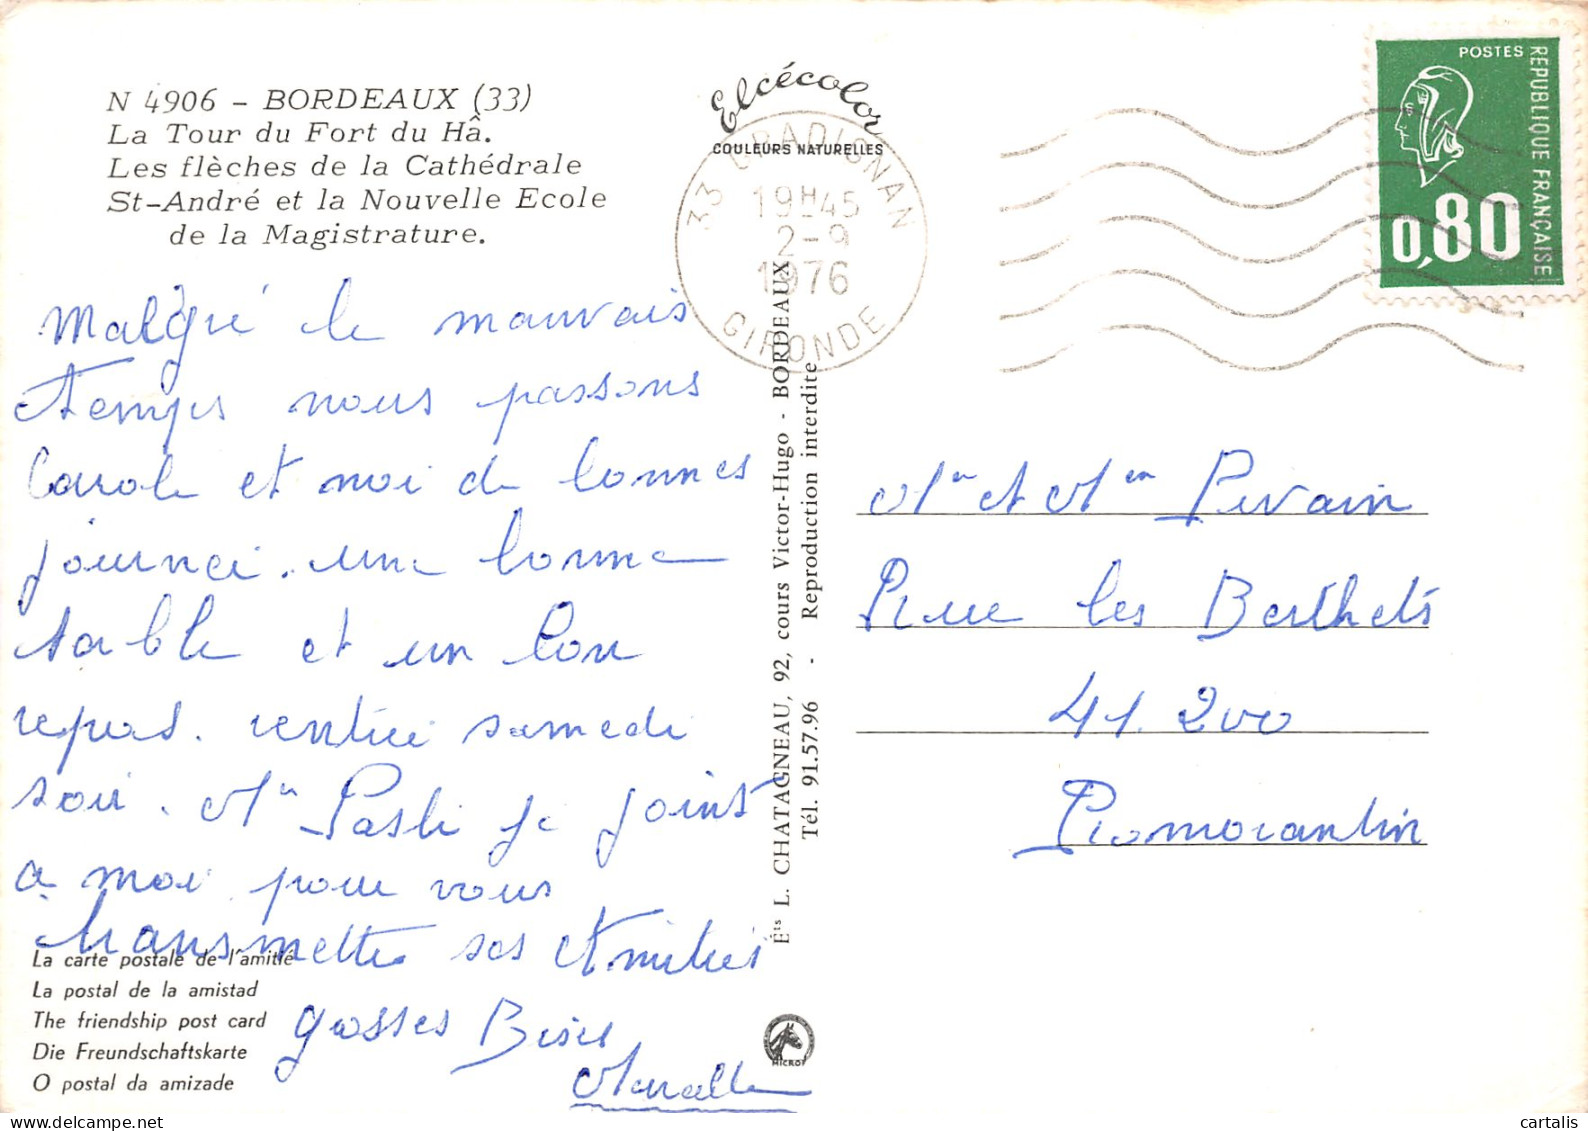 N 4906 - BORDEAUX (33)
La Tour du Fort du Hâ.
Les flèches de la Cathédrale
St-André et la Nouvelle Ecole
de la Magistrature.
Elcécolor
COULEURS NATURELLES
33 GRADIGNAN
19H45
2-9
1976
GIRONDE
POSTES
REPUBLIQUE FRANÇAISE
0,80
Malgré le mauvais
temps nous passons
Carole et moi de bonnes
journéé. une bonne
table et un bon
repas. rentrée samedi
soir. Mr je joint
a moi pour vous
transmettre ses Amitiés
grosses Bises
Marcelle
Éts L. CHATAGNEAU, 92, cours Victor-Hugo - BORDEAUX
Tél. 91.57.96 - Reproduction interdite
Mr et Mem Pivain
Rue les Berthets
41.200
Romorantin
La carte postale de l'amitié
La postal de la amistad
The friendship post card
Die Freundschaftskarte
O postal da amizade
MICRO
cartalis